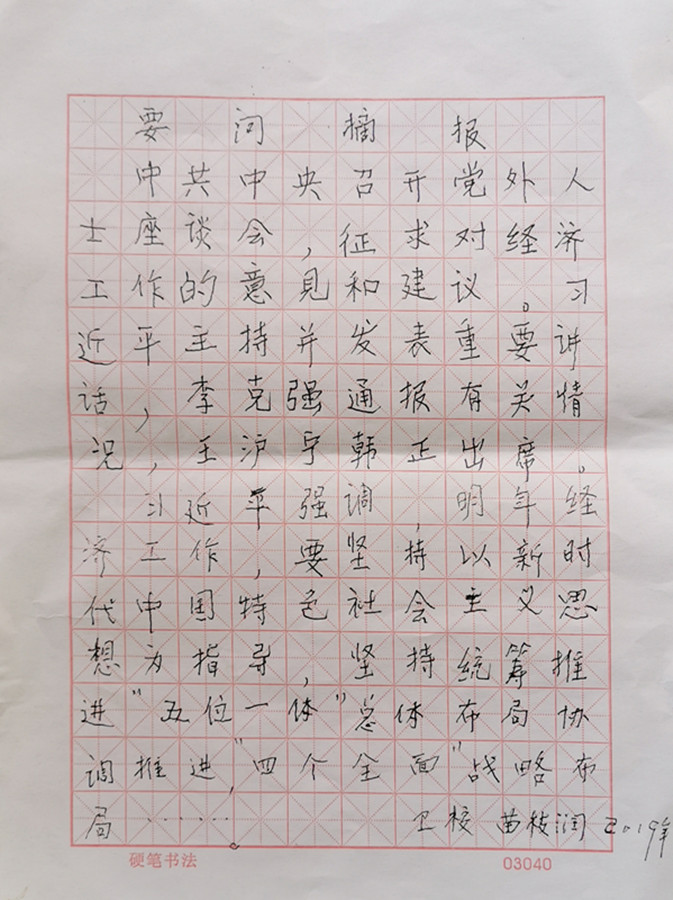 要问摘报
中共中央召开党外人
士座谈会,征求对经济
工作的意见和建议。习
近平主持并发表重要讲
话,李克强通报有关情
况,王沪宁韩正出席。
习近平强调,明年经
济工作,要坚持以新时
代中国特色社会主义思
想为指导,坚持统筹推
进“五位一体”总体布局协
调推进,“四个全面”战略布
局……。 卫校 苗枝润 2019年
硬笔书法 03040